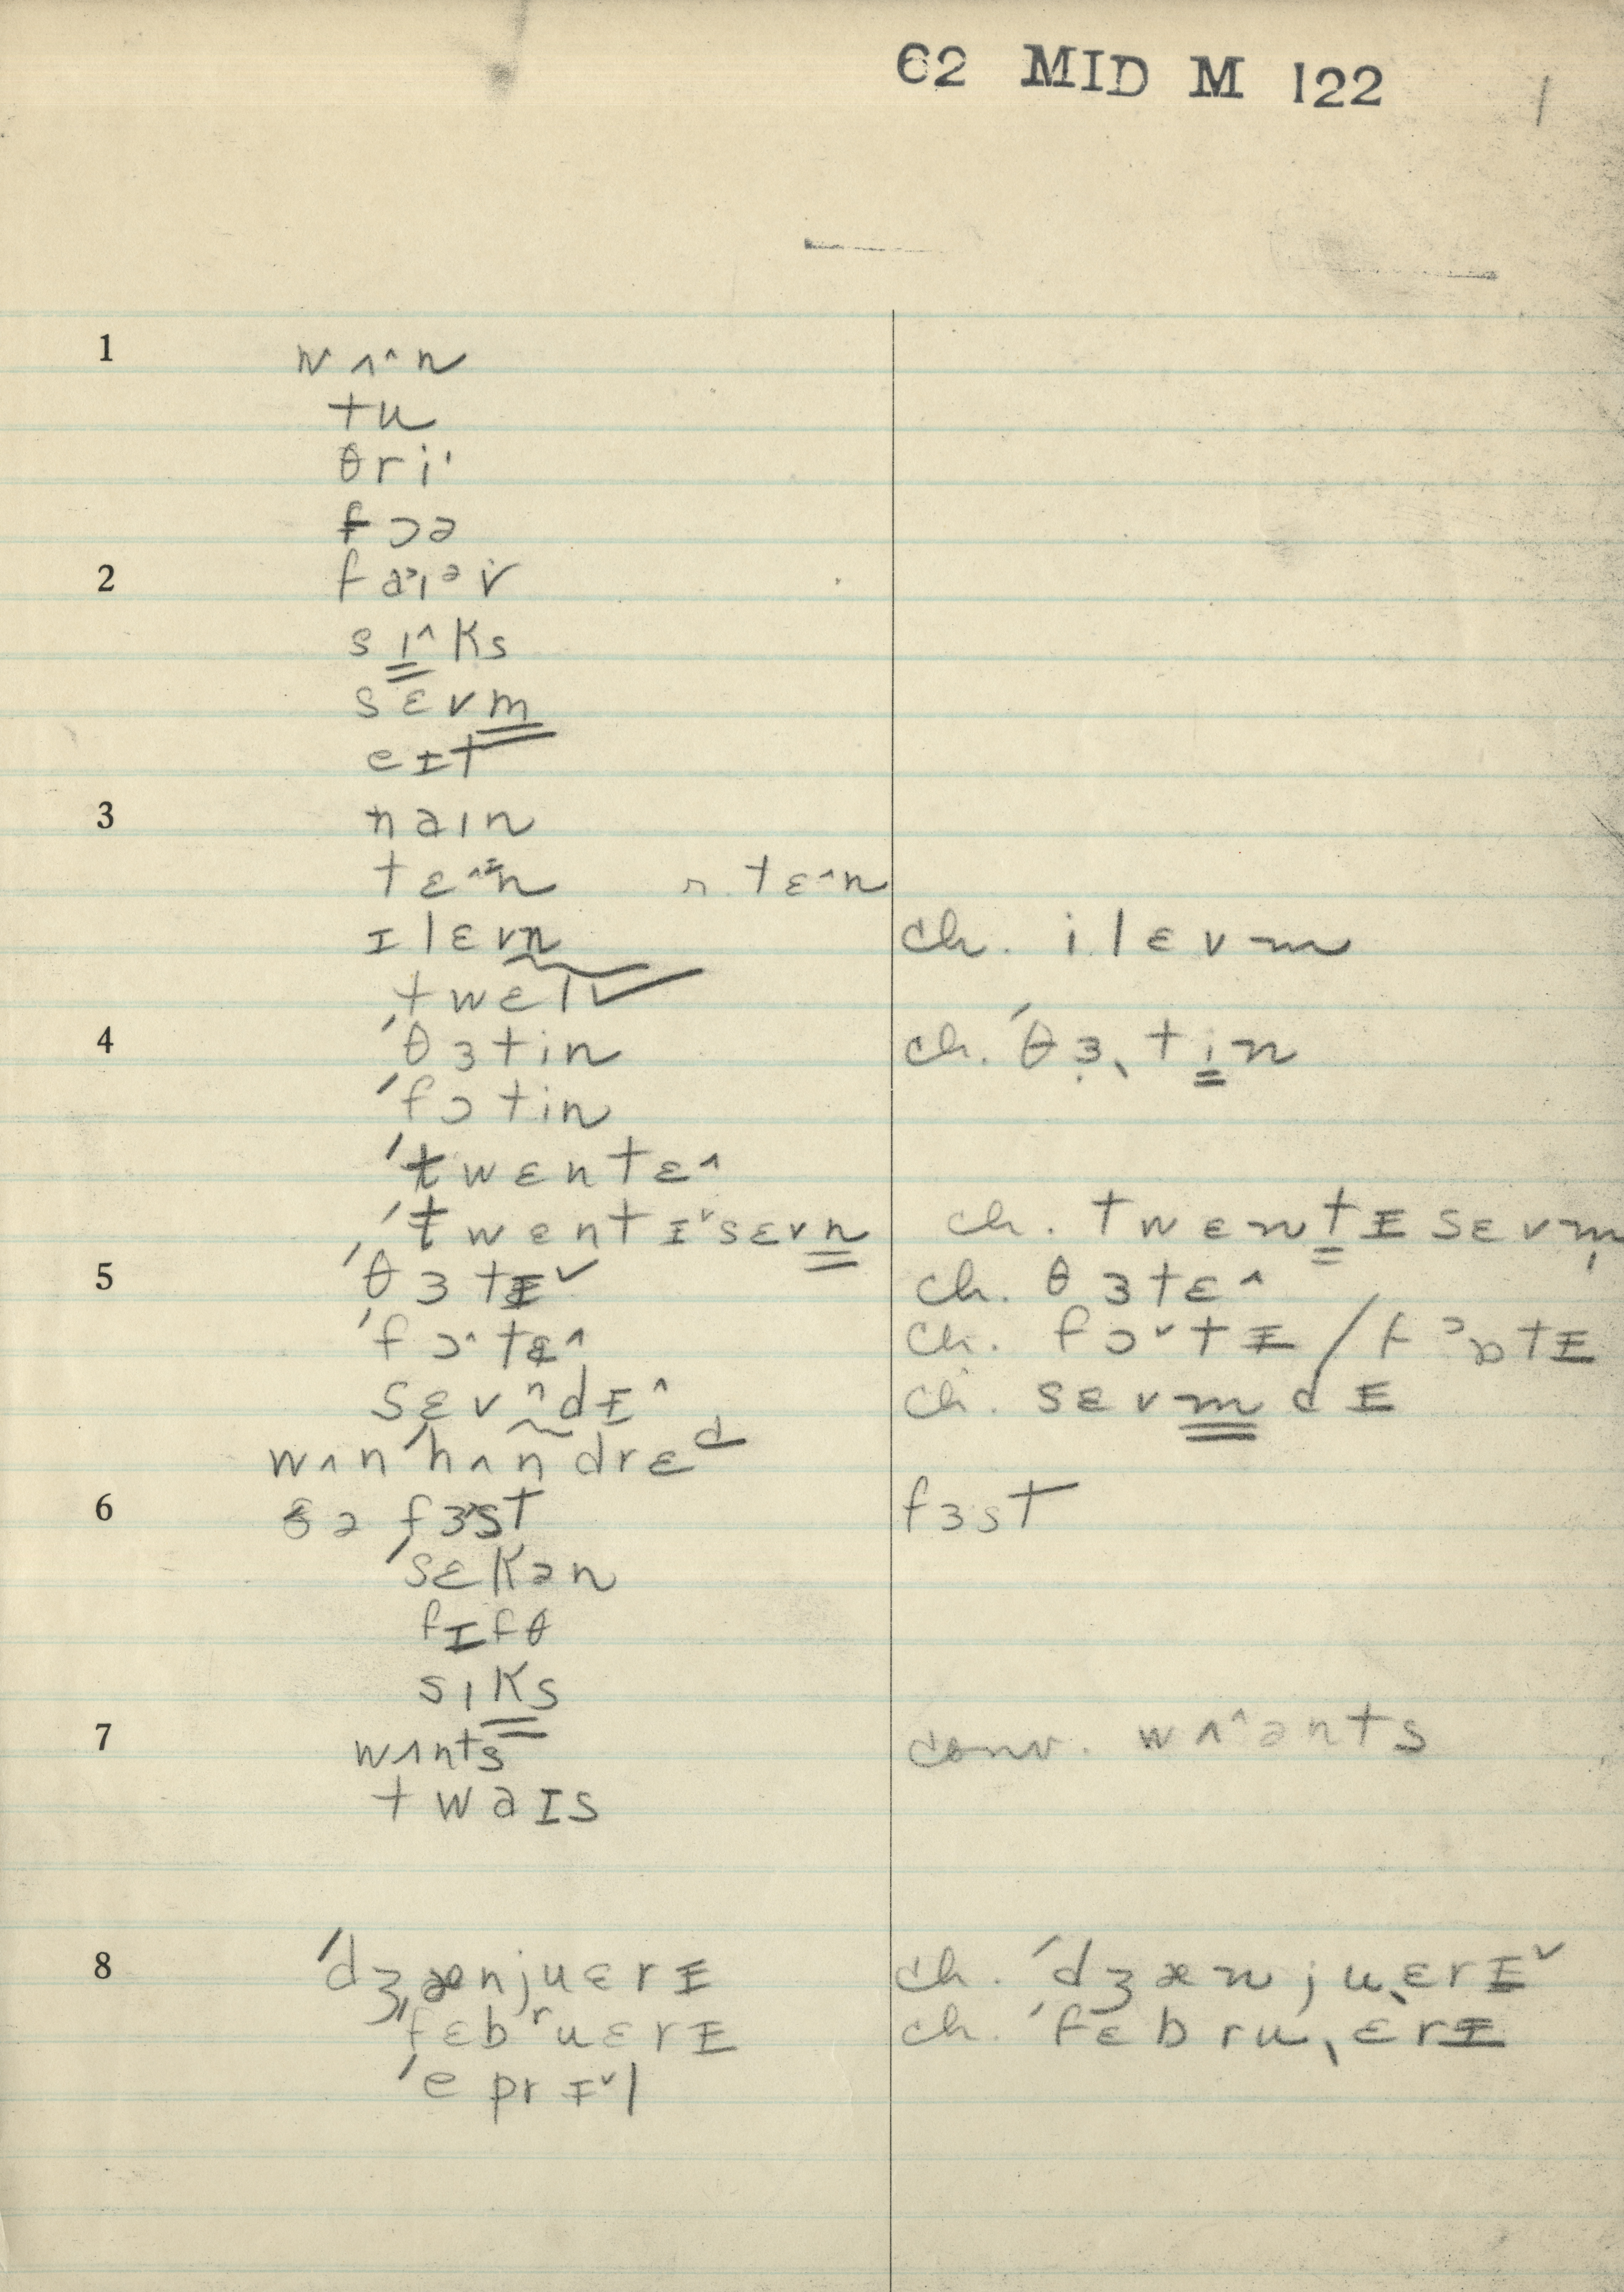 62 MID M 122 1
1 wʌ^n
tu
θri'
fɔə
2 fa>ɪəv
sɪ^ks
sɛvm
eɪt
3 naɪn
tɛ^ᵻn r. tɛ^n
ɪlɛvn ch. i.lɛvm
twɛlv
4 'θɜtin ch. 'θɜˎtin
'fɔtin
'twɛntɛ^
'twɛntɪˇsɛvn ch. twɛntᵻsɛvm
5 'θɜtᵻˇ ch. θɜtɛ^
'fɔ^tɛ^ ch. fɔˇtᵻ / fɔɒtᵻ
sɛvⁿdᵻ^ ch. sɛvmdᵻ
wʌn'hʌndrɛd
6 ðə fɜst fɜst
'sɛkən
fɪfθ
sɪks
7 wʌnts conv. wʌ^ənts
twaɪs
8 'dʒænjuɛrᵻ ch. 'dʒænjuˎɛrᵻˇ
'fɛbʳuɛrᵻ ch. 'fɛbruˎɛrᵻ
'eprᵻˇl